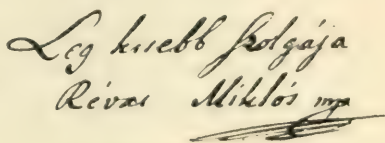 Leg kissebb Szolgája
Révai Miklós mp